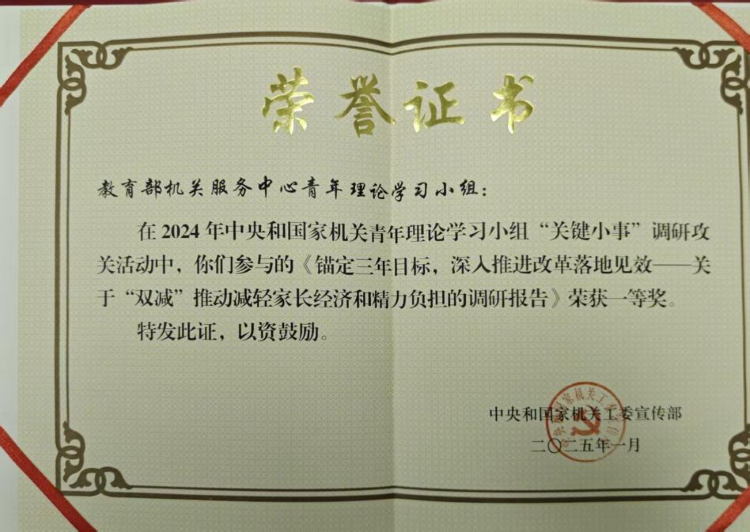 荣誉证书
教育部机关服务中心青年理论学习小组：
在2024年中央和国家机关青年理论学习小组“关键小事”调研攻
关活动中，你们参与的《锚定三年目标，深入推进改革落地见效——关
于“双减”推动减轻家长经济和精力负担的调研报告》荣获一等奖。
特发此证，以资鼓励。
中央和国家机关工委宣传部
二〇二五年一月